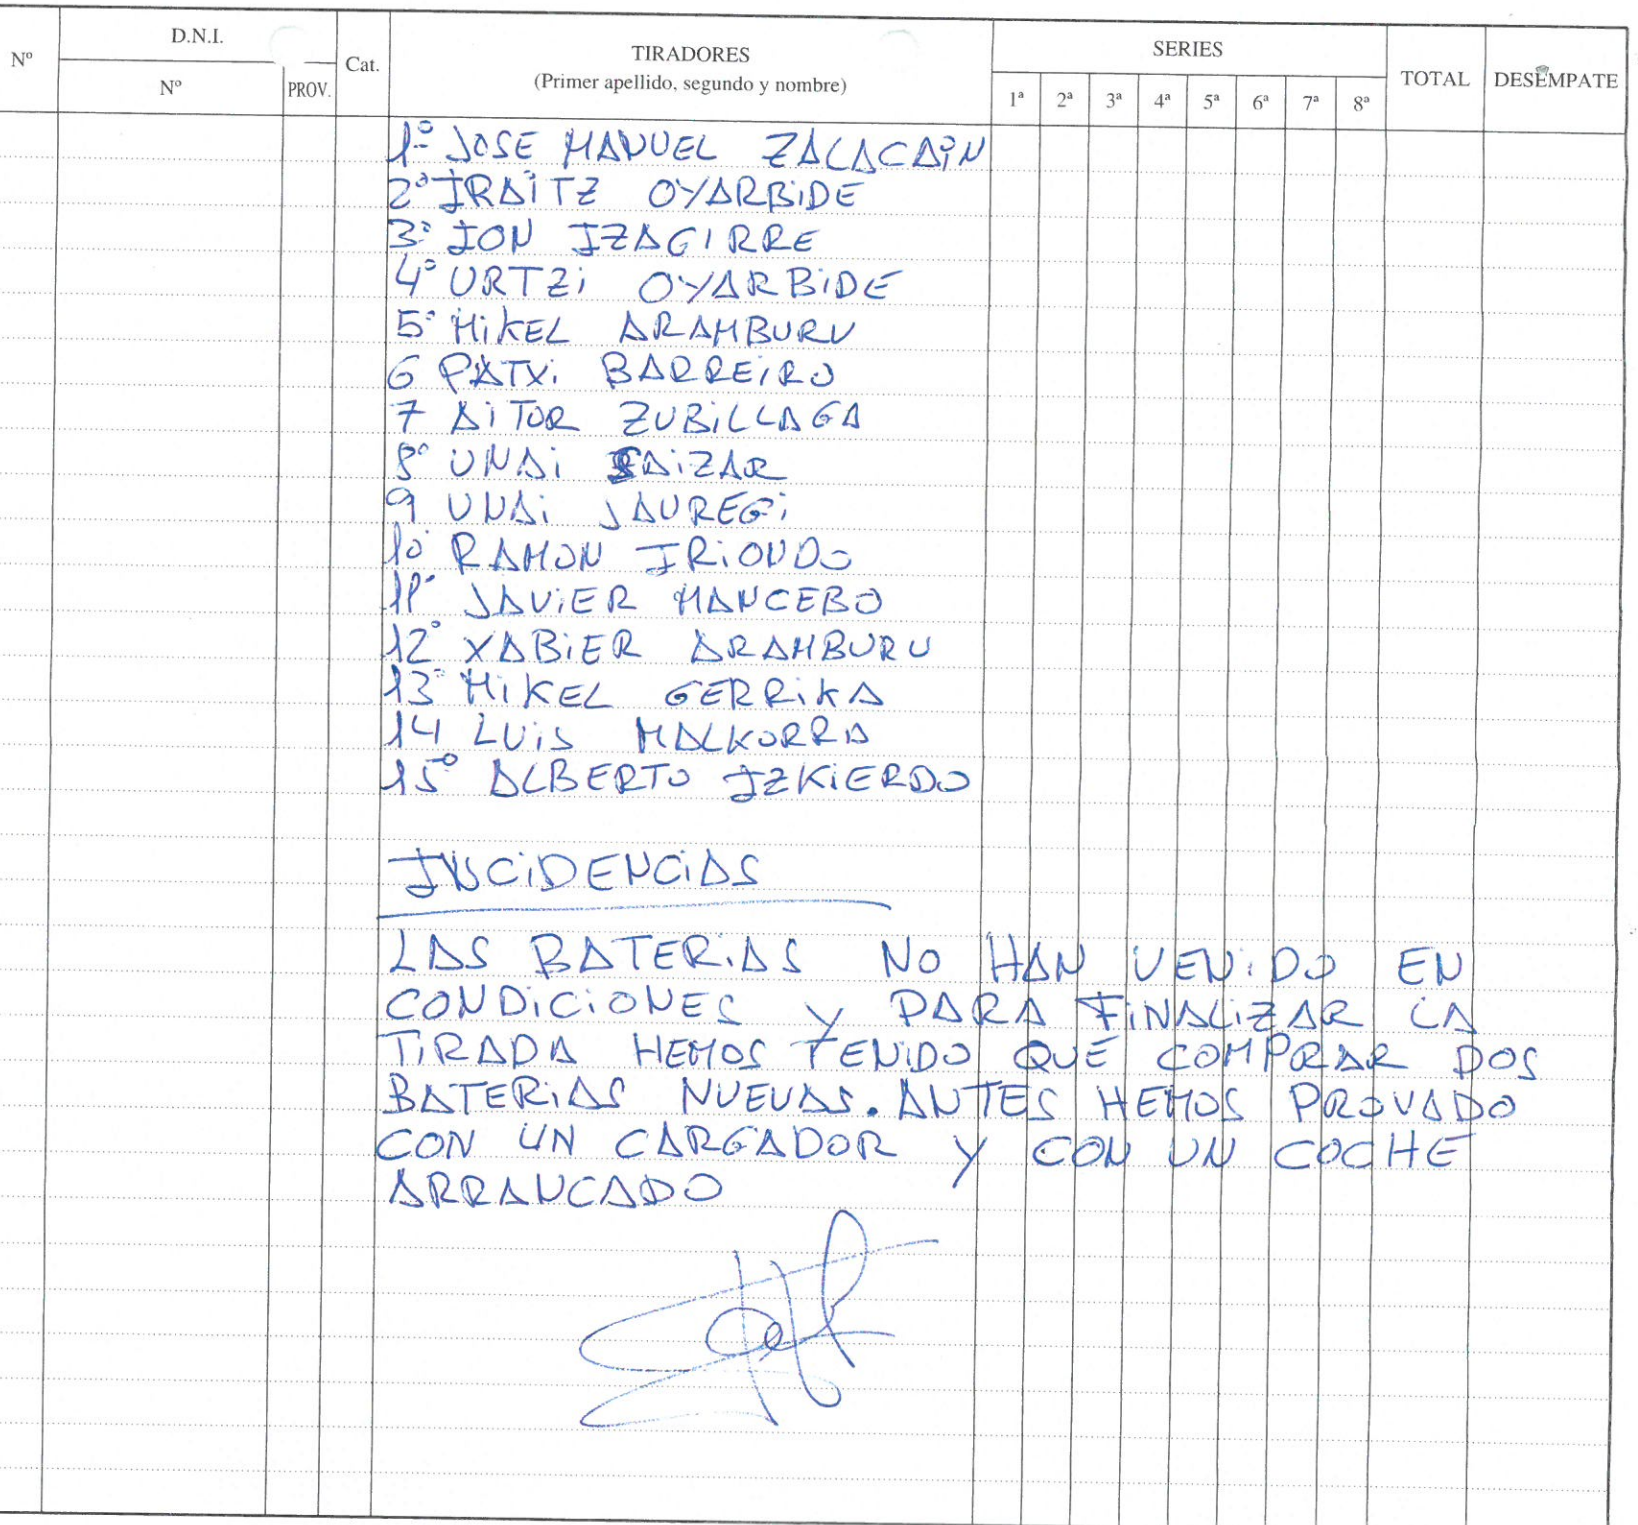 Nº D.N.I. Cat. TIRADORES SERIES TOTAL DESEMPATE
Nº PROV. (Primer apellido, segundo y nombre) 1ª 2ª 3ª 4ª 5ª 6ª 7ª 8ª
1º JOSE MANUEL ZALACAiN
2º IRAiTZ OYARBiDE
3º ION IZAGIRRE
4º URTZi OYARBiDE
5º MiKEL ARAMBURU
6 PATXi BARREiRO
7 AiTOR ZUBiLLAGA
8º UNAi SAiZAR
9 UNAi JAUREGi
10 RAMON IRiONDO
11º JAViER MANCEBO
12º XABiER ARAMBURU
13 MiKEL GERRiKA
14 LUiS MALKORRA
15º ALBERTO IZKiERDO
INSCiDENCiAS
LAS BATERiAS NO HAN VENiDO EN
CONDiCiONES Y PARA FiNALiZAR LA
TiRADA HEMOS TENiDO QUE COMPRAR DOS
BATERiAS NUEVAS. ANTES HEMOS PROVADO
CON UN CARGADOR Y CON UN COCHE
ARRANCADO